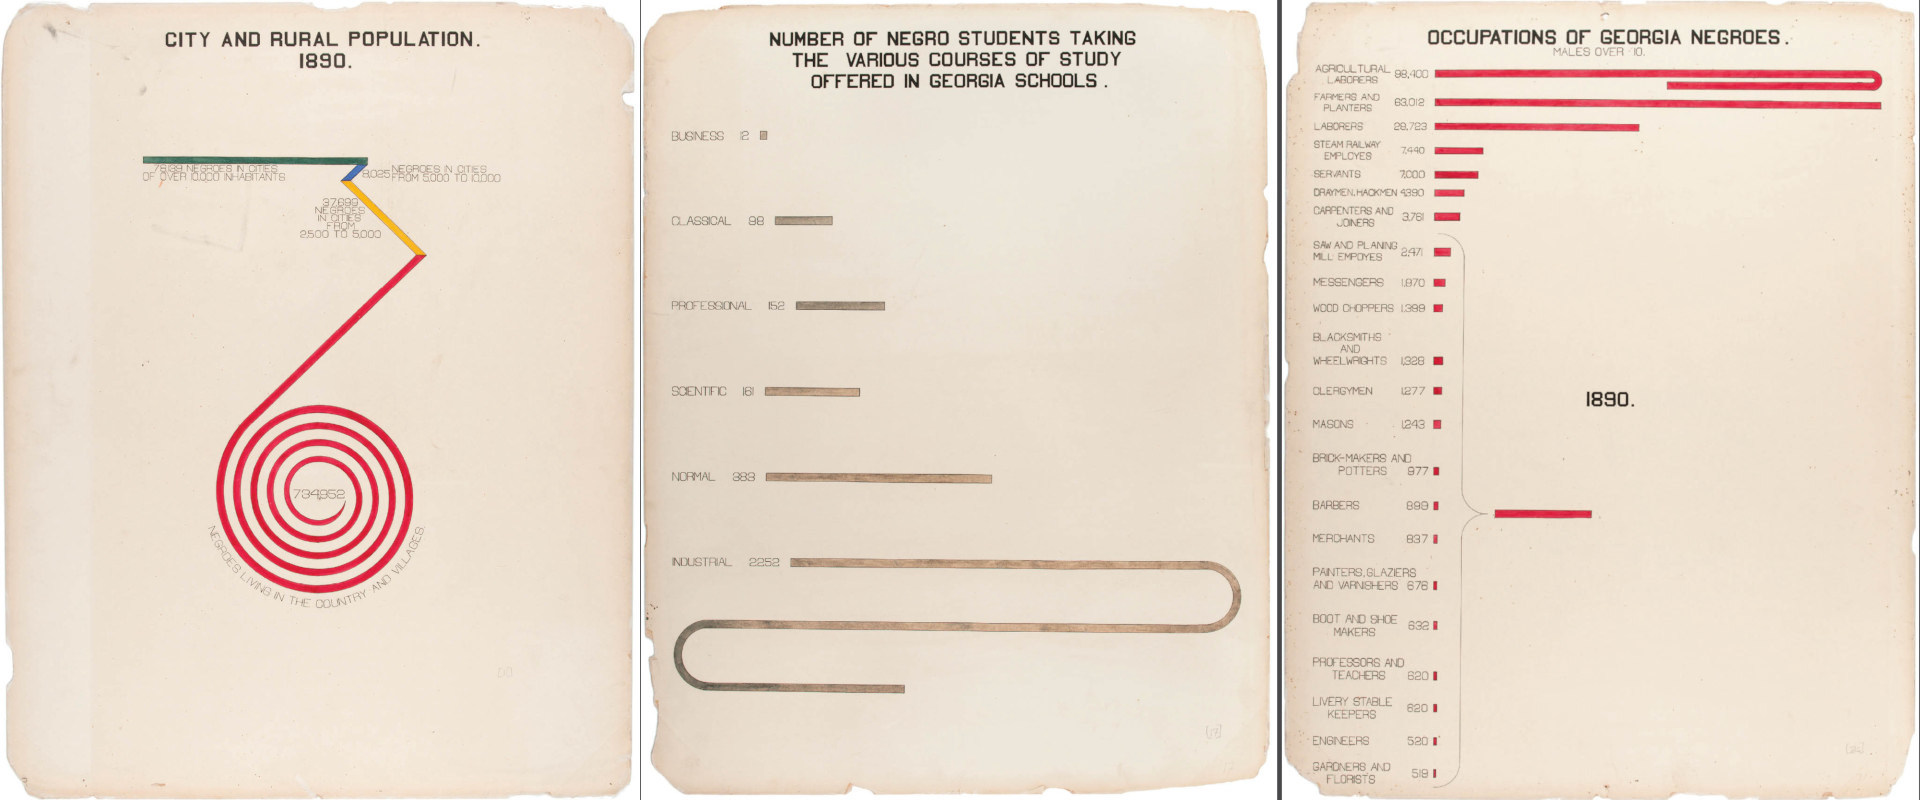 CITY AND RURAL POPULATION.
1890.
78,139 NEGROES IN CITIES
OF OVER 10,000 INHABITANTS
8,025 NEGROES IN CITIES
FROM 5,000 TO 10,000
37,699
NEGROES
IN CITIES
FROM
2,500 TO 5,000
734,952
NEGROES LIVING IN THE COUNTRY AND VILLAGES.
NUMBER OF NEGRO STUDENTS TAKING
THE VARIOUS COURSES OF STUDY
OFFERED IN GEORGIA SCHOOLS.
BUSINESS 12
CLASSICAL 98
PROFESSIONAL 152
SCIENTIFIC 161
NORMAL 383
INDUSTRIAL 2252
OCCUPATIONS OF GEORGIA NEGROES.
MALES OVER 10.
AGRICULTURAL
LABORERS 98,400
FARMERS AND
PLANTERS 63,012
LABORERS 29,723
STEAM RAILWAY
EMPLOYES 7,440
SERVANTS 7,000
DRAYMEN, HACKMEN 4,390
CARPENTERS AND
JOINERS 3,761
SAW AND PLANING
MILL EMPOYES 2,471
MESSENGERS 1,970
WOOD CHOPPERS 1,399
BLACKSMITHS
AND
WHEELWRIGHTS 1,329
CLERGYMEN 1,277
MASONS 1,243
1890.
BRICK-MAKERS AND
POTTERS 977
BARBERS 899
MERCHANTS 837
PAINTERS, GLAZIERS
AND VARNISHERS 676
BOOT AND SHOE
MAKERS 632
PROFESSORS AND
TEACHERS 620
LIVERY STABLE
KEEPERS 620
ENGINEERS 520
GARDNERS AND
FLORISTS 519